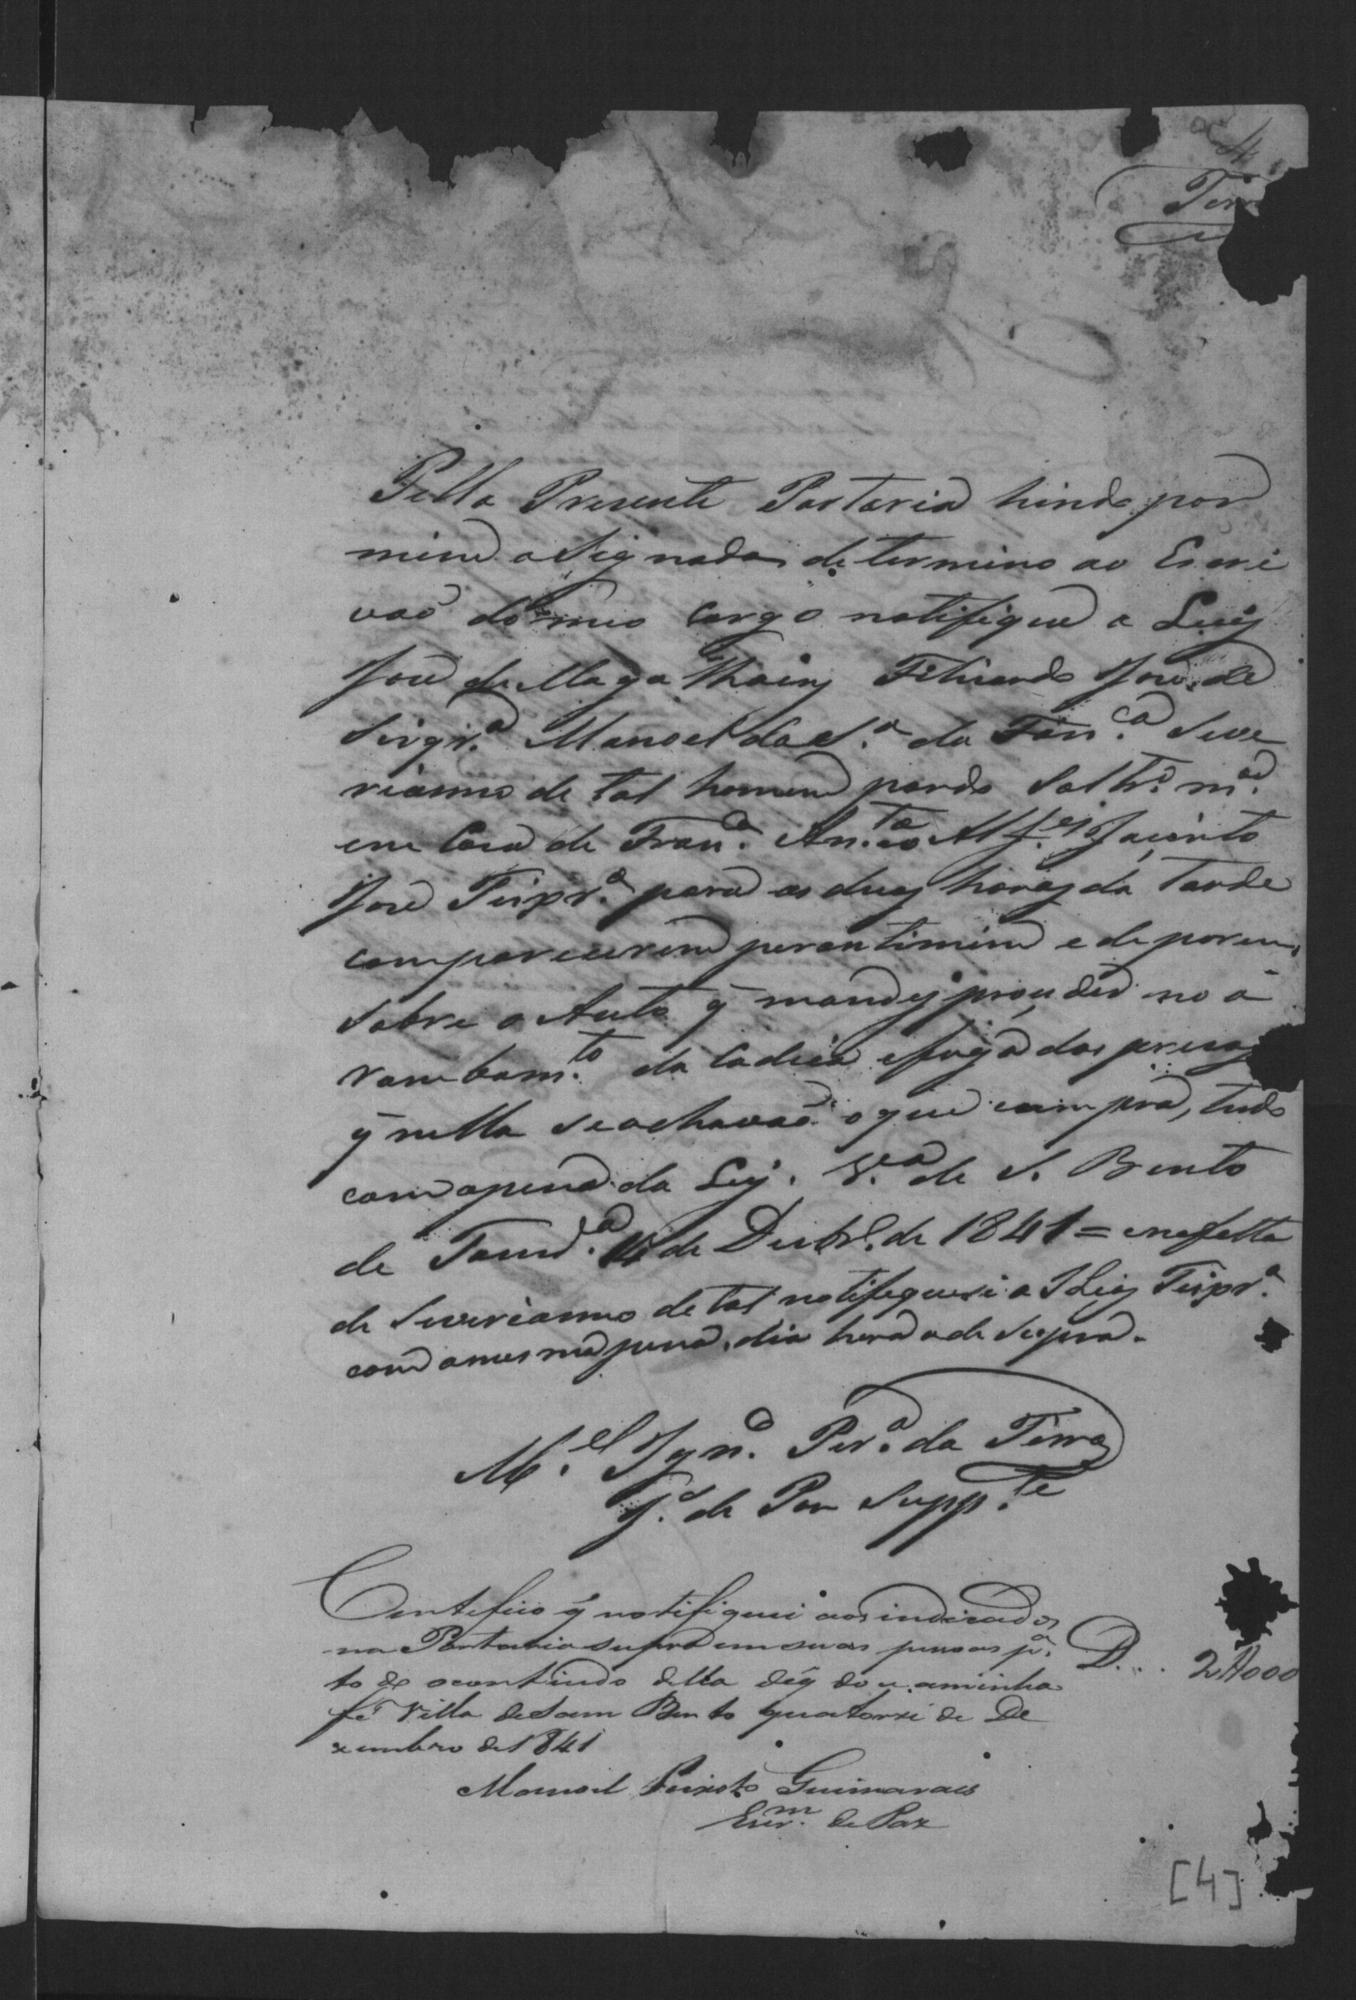 4
Terra
Pella Presente Portaria hindo por
mim asignada determino ao Escri
vaõ do meo cargo notifique a Luiz
José de Magalhaiz Feliciardo José de
Sirqr.ª Manoel da S.ª da Fon.ca Seve
rianno de tal homem pardo Soltr.º m.or
em Casa de Fran.co An.to Alf.es Jacinto
José Teixr.ª para as duas horas da tarde
comparecerem perantimim e deporem
sobre o Auto q̃ mandei proceder no a
rombam.to da Cadeia efuga dos prezos
q̃ nella seachavaõ o que cumpra, tudo
com apena da Ley. V.ª de S. Bento
de Tamd.ª 14 de Dezbr.º de 1841 = enafalta
de Severianno de tal notifiquesi a Teixr.ª
com amesma pena, dia hora ade Supra.
M.el Ign.co Per.ª da Terra
J. de Paz Supp.te
Certefico q̃ notifiquei aos indicados
na Portaria supra em suas pessoas p.ª
to do ocontiudo della de q̃ dou aminha
fé Villa de Sam Bento quatorze de De
zembro de 1841
D... 2$000
Manoel Peixoto Guimaraes
Escr.m de Paz
[4]